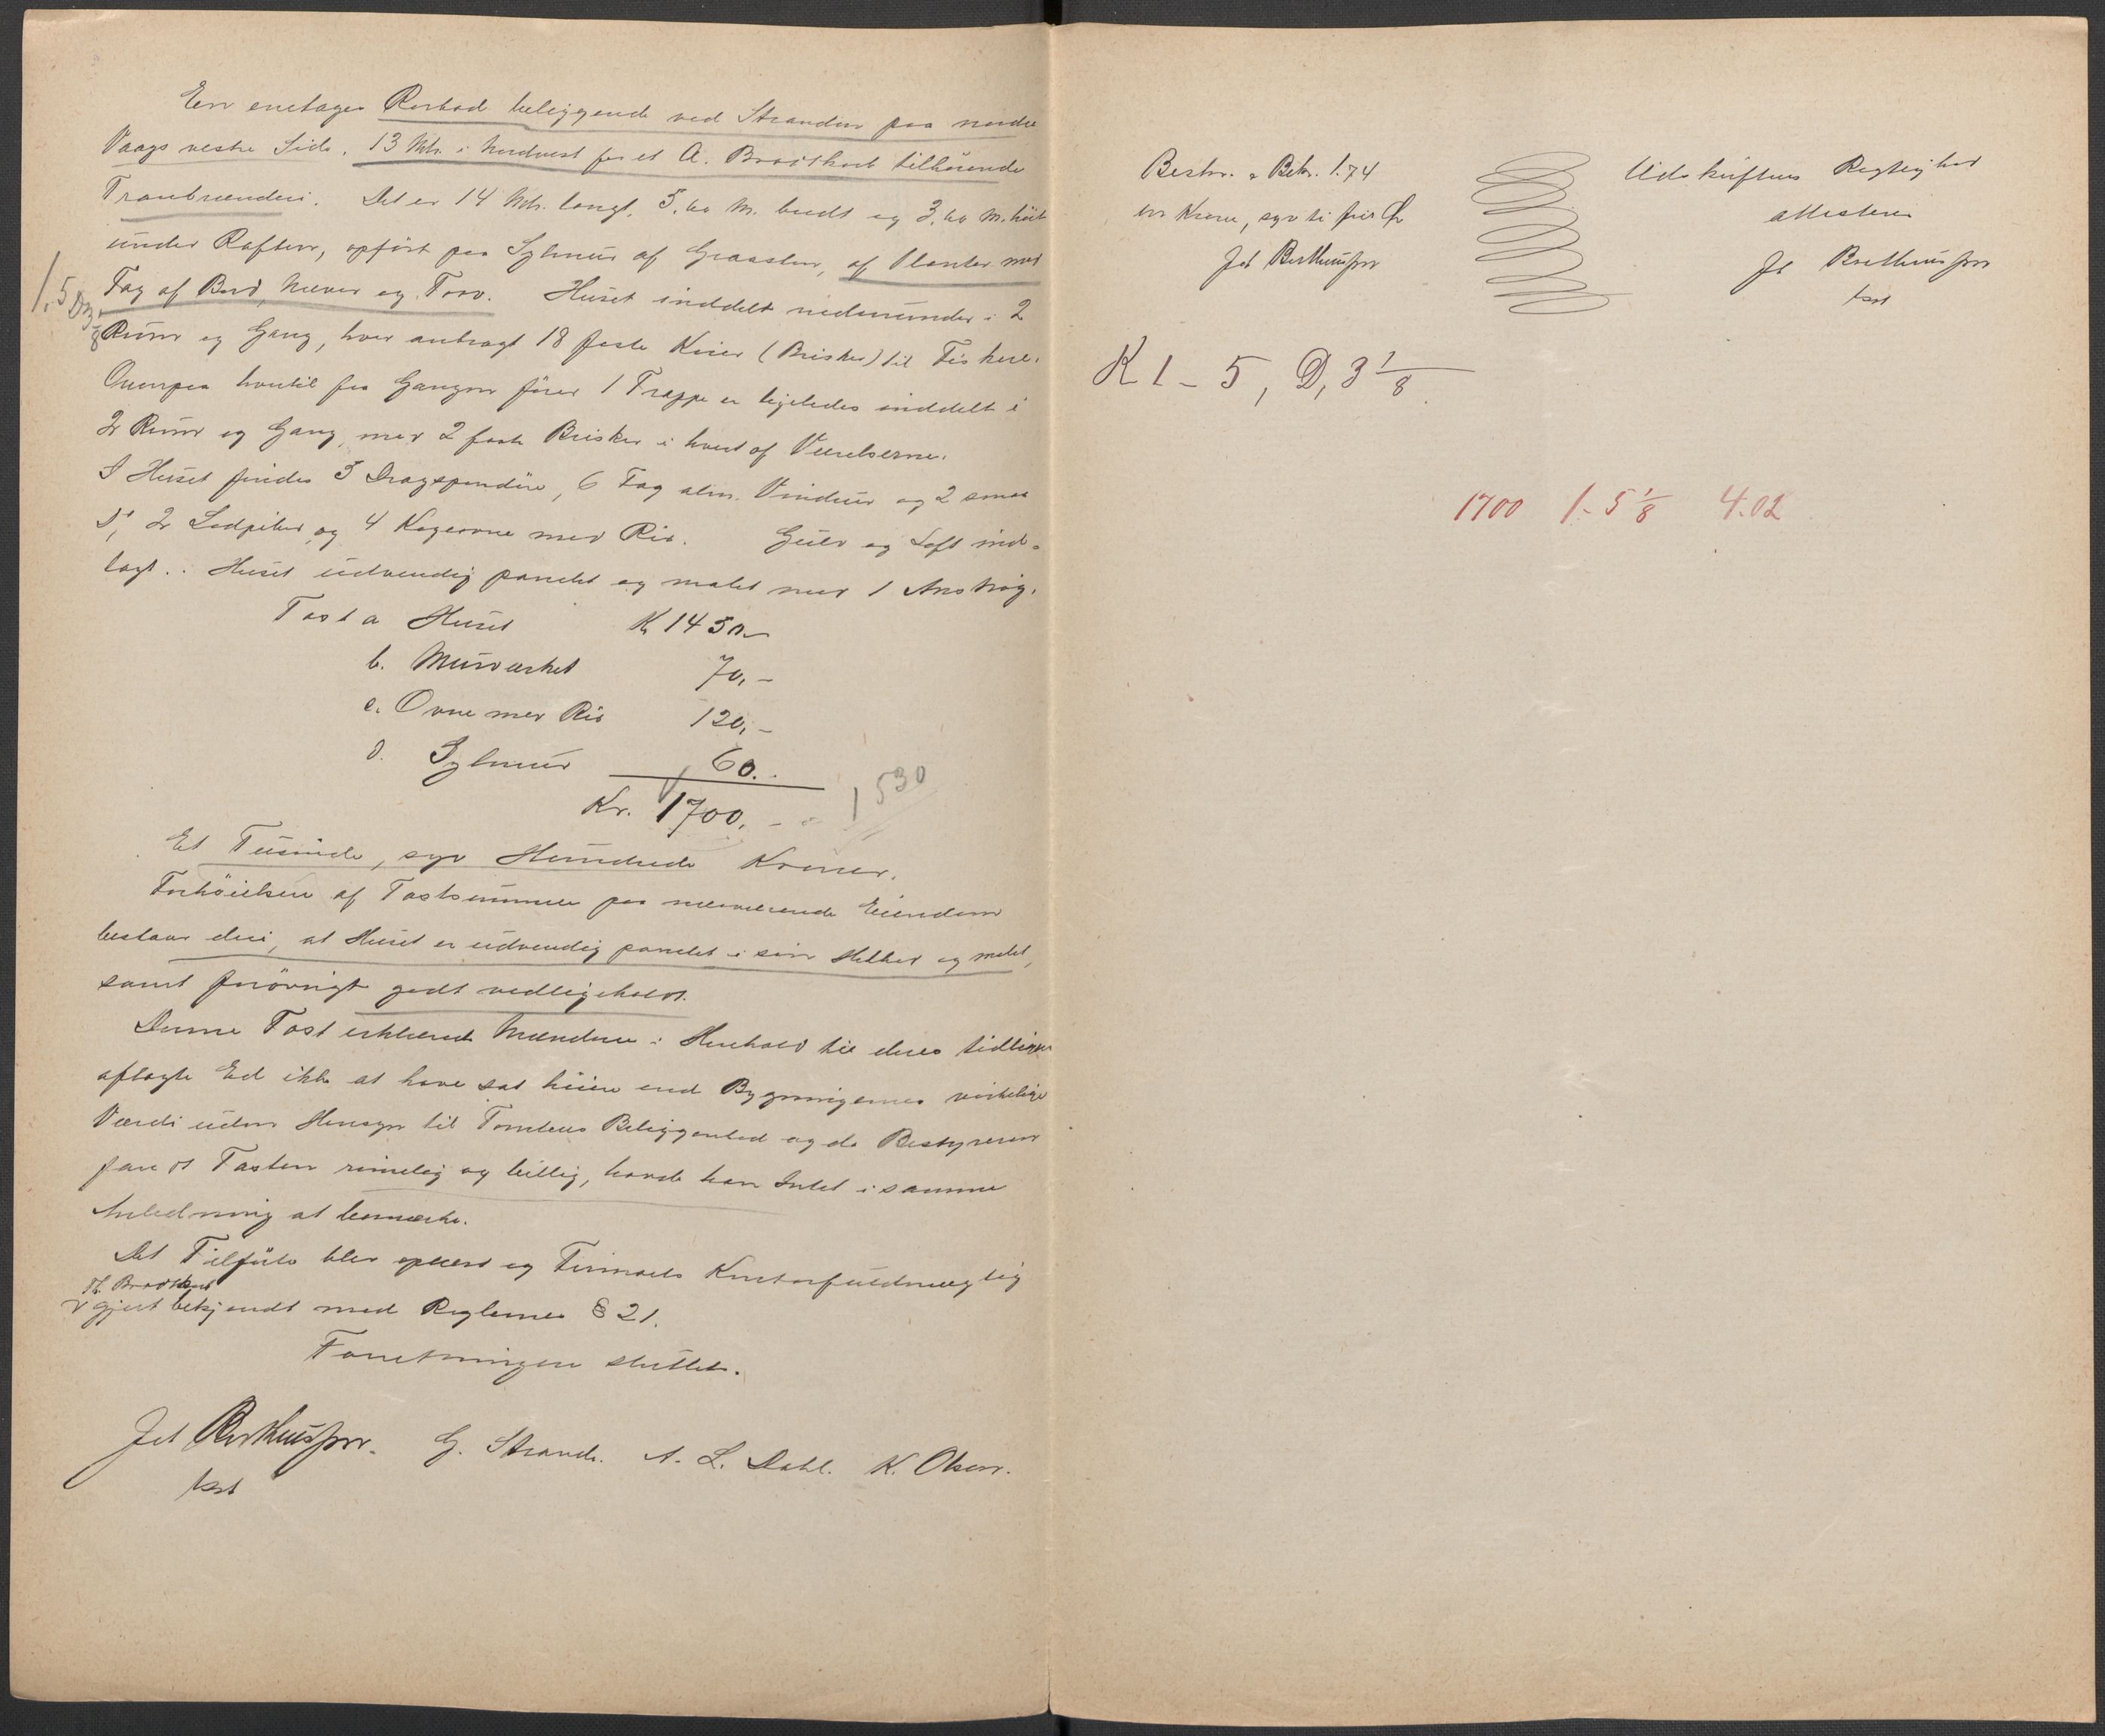 En enetages Rorbod beliggende ved Stranden paa nordre
Vaags vestre Side, 13 Mtr. i Nordvest for et A. Brodtkorb tilhørende
Tranbrænderi. Det er 14 Mtr. langt, 5,60 M. bredt og 3,60 M. høit
under Raften, opført paa Sylmur af Graasten, af Planker med
Tag af Bord, Næver og Torv. Huset inddelt nedenunder i 2
1. 5 D 3 1/8
Rum og Gang, hvor anbragt 18 faste Køier (Brisker) til Fiskere.
Ovenpaa hvortil fra Gangen fører 1 Trappe er ligeledes inddelt i
2 Rum og Gang, med 2 faste Brisker i hvert af Værelserne.
I Huset findes 3 Dragspendøre, 6 Fag alm. Vinduer og 2 smaa
Dº, 2 Lodpiber og 4 Kogeovne med Rør. Gulv og Loft ind-
lagt. Huset udvendig panelt og malet med 1 Anstrøg.
Taxt a Huset K 1450.-
b. Murværket 70,-
c. Ovne med Rør 120,-
d. Sylmur 60..
Kr. 1700,- 1530
Et Tusinde, syv Hundrede Kroner.
Forhøielsen af Taxtsummen paa nærværende Eiendom
bestaar deri, at Huset er udvendig panelt i sin Helhed og malet,
samt forøvrigt godt vedligeholdt.
Denne Taxt erklærede Mændene i Henhold til deres tidligere
aflagte Ed ikke at have sat høiere end Bygningernes virkelige
Værdi uden Hensyn til Tomtens Beliggenhed og da Bestyreren
fandt Taxten rimelig og billig, havde han Intet i samme
Anledning at bemærke.
Det Tilførte blev oplæst og Firmaets Kontorfuldmægtig
Hr. Brodtkorb
v gjort bekjendt med Reglernes § 21.
Forretningen sluttet.
Jet Bertheussen. G. Strand. A. L. Dahl. K. Olsen.
kst
Bestr. s Bekr. 1.74
en Krone, syv ti fire Ør
Jet Bertheussen
Udskriftens Rigtighed
attesterer
Jet Bertheussen
kst
K 1 - 5, D, 3 1/8
1700 1-5 1/8 4.02